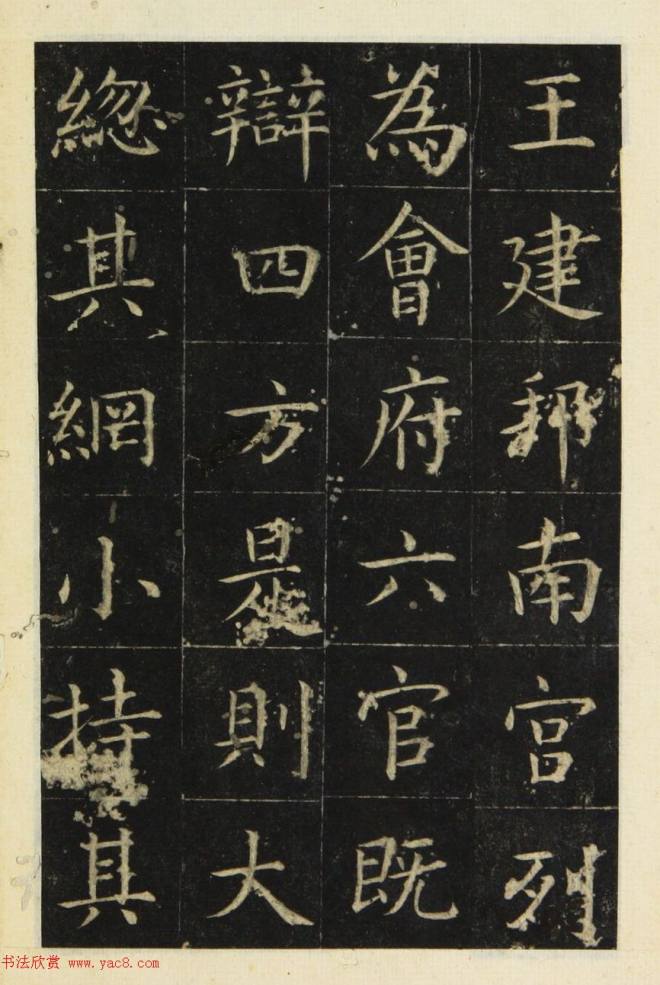 王建邦南宫列
為會府六官既
辯四方是則大
緫其網小持其
书法欣赏 www.yac8.com